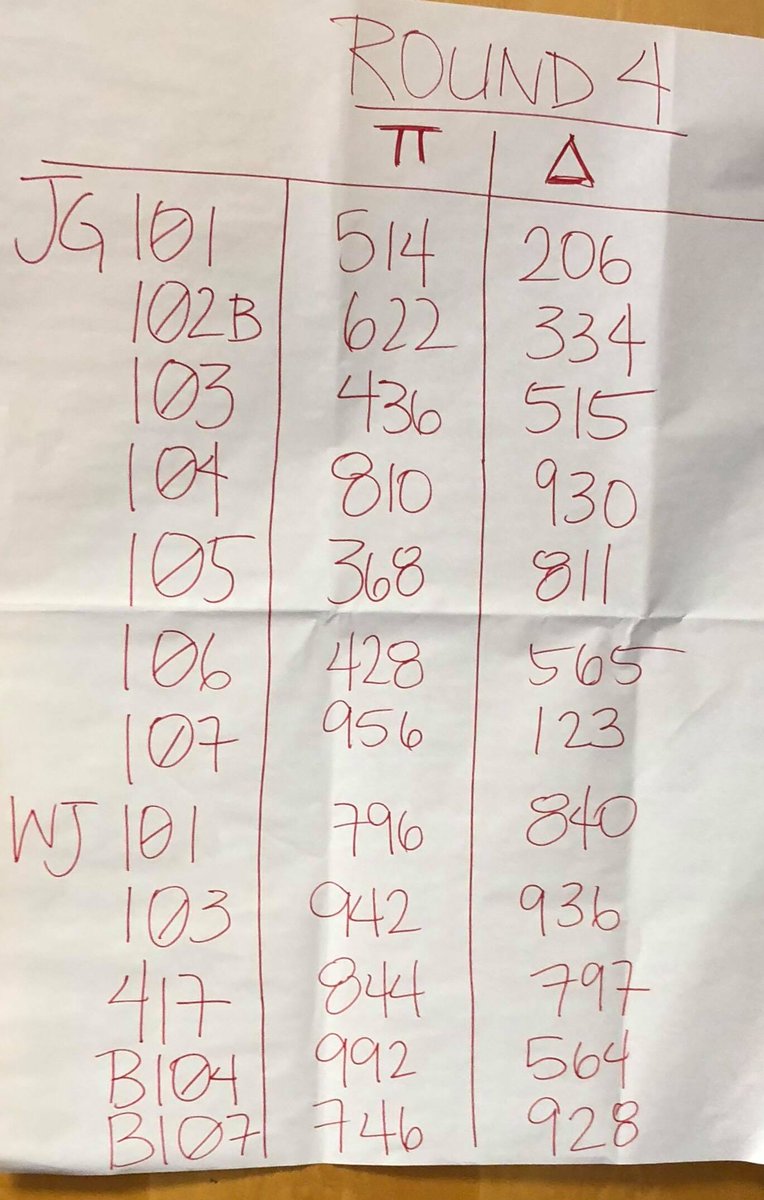 ROUND 4
π Δ
JG 101 514 206
102B 622 334
103 436 515
104 810 930
105 368 811
106 428 565
107 956 123
WJ 101 796 840
103 942 936
417 844 797
B104 992 564
B107 746 928